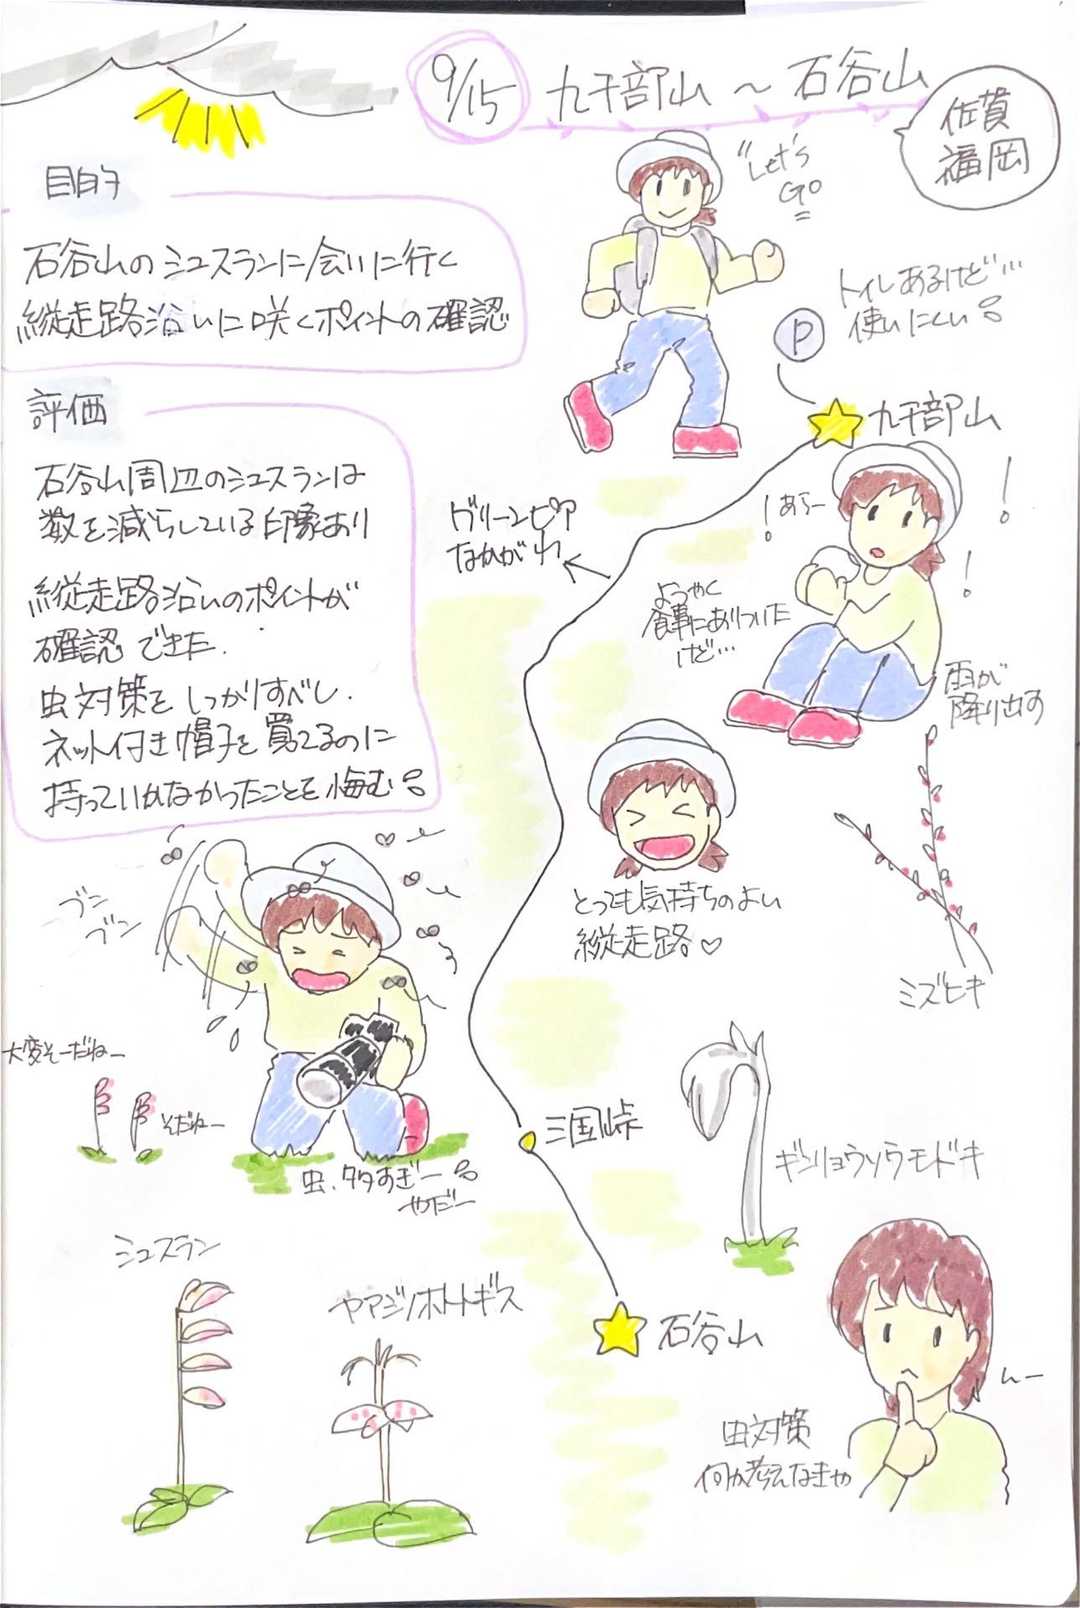 9/15
九千部山 ～ 石谷山
佐賀
福岡
"Let's
Go
目的
石谷山のシュスランに会いに行く
縦走路沿いに咲くポイントの確認
トイレあるけど…
使いにくい
P
九千部山
評価
石谷山周辺のシュスランは
数を減らしている印象あり
縦走路沿いのポイントが
確認できた.
虫対策を しっかりすべし.
ネット付き帽子を買ってるのに
持っていかなかったことを悔む
グリーンピア
なかがわ
！あらー
ようやく
食事にありついた
けど…
！
！
雨が
降り出す
とっても気持ちのよい
縦走路♡
ミズヒキ
ブン
ブン
大変そーだねー
そだねー
虫、多すぎー
やだー
三国峠
ギンリョウソウモドキ
シュスラン
ヤマジノホトトギス
石谷山
んー
虫対策
何か考えなきゃ